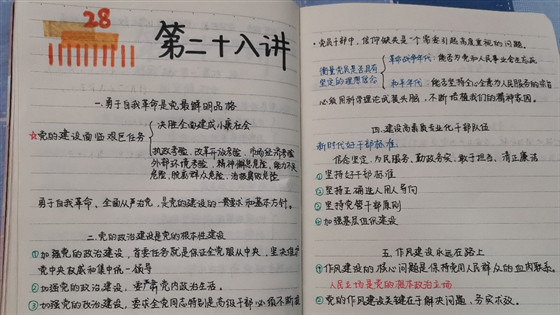 28
第二十八讲
一.勇于自我革命是党最鲜明品格
☆党的建设面临艰巨任务
决胜全面建成小康社会
执政考验、改革开放考验、市场经济考验
外部环境考验，精神懈怠危险，能力不足
危险，脱离群众危险，消极腐败危险
勇于自我革命、全面从严治党，是党的建设的一贯要求和基本方针。
二.党的政治建设是党的根本性建设
①加强党的政治建设，首要任务就是保证全党服从中央，坚决维护
党中央权威和集中统一领导
②加强党的政治建设，要严肃党内政治生活。
③加强党的政治建设，要求全党同志特别是高级干部必须不断提
·党员干部中，信仰缺失是一个需要引起高度重视的问题。
衡量党员是否具有
坚定的理想信念
革命战争年代：能否为党和人民事业舍生忘死
和平年代：能否坚持全心全意为人民服务的宗旨
必须用科学理论武装头脑，不断培植我们的精神家园。
四.建设高素质专业化干部队伍
新时代好干部标准
信念坚定，为民服务，勤政务实，敢于担当，清正廉洁
①坚持好干部标准
②坚持正确选人用人导向
③坚持党管干部原则
④加强基层组织建设
五.作风建设永远在路上
①作风建设的核心问题是保持党同人民群众的血肉联系。
人民立场是党的根本政治立场
②党的作风建设关键在于解决问题，务求实效。